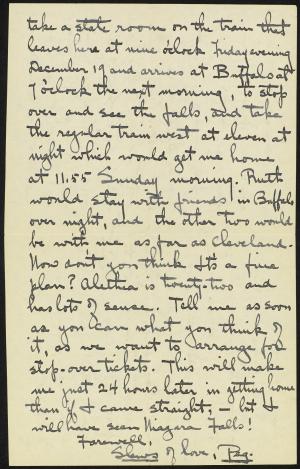 take a state room on the train that
leaves here at nine o'clock Friday evening
December 19 and arrives at Buffalo at
7 o'clock the next morning, to stop
over and see the falls, and take
the regular train west at eleven at
night which would get me home
at 11:55 Sunday morning. Ruth
would stay with friends in Buffalo
over night, and the other two would
be with me as far as Cleveland.
Now don't you think it's a fine
plan? Alethea is twenty-two and
has lots of sense. Tell me as soon
as you can what you think of
it, as we want to arrange for
stop-over tickets. This will make
me just 24 hours later in getting home
than if I came straight, – but I
will have seen Niagara Falls!
Farewell,
Slews of love, Peg.